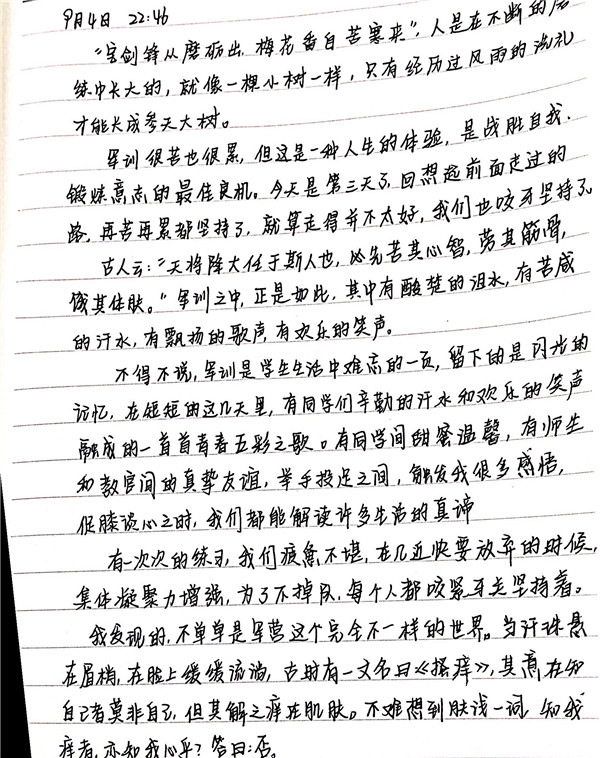 9月4日 22:46
“宝剑锋从磨砺出，梅花香自苦寒来”，人是在不断的磨
练中长大的，就像一棵小树一样，只有经历过风雨的洗礼
才能长成参天大树。
军训很苦也很累，但这是一种人生的体验，是战胜自我.
锻炼意志的最佳良机。今天是第三天了，回想起前面走过的
路，再苦再累都坚持了，就算走得并不太好，我们也咬牙坚持了。
古人云：“天将降大任于斯人也，必先苦其心智，劳其筋骨，
饿其体肤。”军训之中，正是如此，其中有酸楚的泪水，有苦咸
的汗水，有飘扬的歌声，有欢乐的笑声。
不得不说，军训是学生生活中难忘的一页，留下的是闪光的
记忆，在短短的这几天里，有同学们辛勤的汗水和欢乐的笑声
融成的一首首青春五彩之歌。有同学间甜蜜温馨，有师生
和教官间的真挚友谊，举手投足之间，触发我很多感悟，
促膝谈心之时，我们都能解读许多生活的真谛
有一次次的练习，我们疲惫不堪，在几近快要放弃的时候，
集体凝聚力增强，为了不掉队，每个人都咬紧牙关坚持着。
我发现的，不单单是军营这个完全不一样的世界。当汗珠悬
在眉梢，在脸上缓缓流淌，古时有一文名曰《搔痒》，其意在知
自己者莫非自己，但其解之痒在肌肤。不难想到肤浅一词，知我
痒者，亦知我心乎？答曰：否。